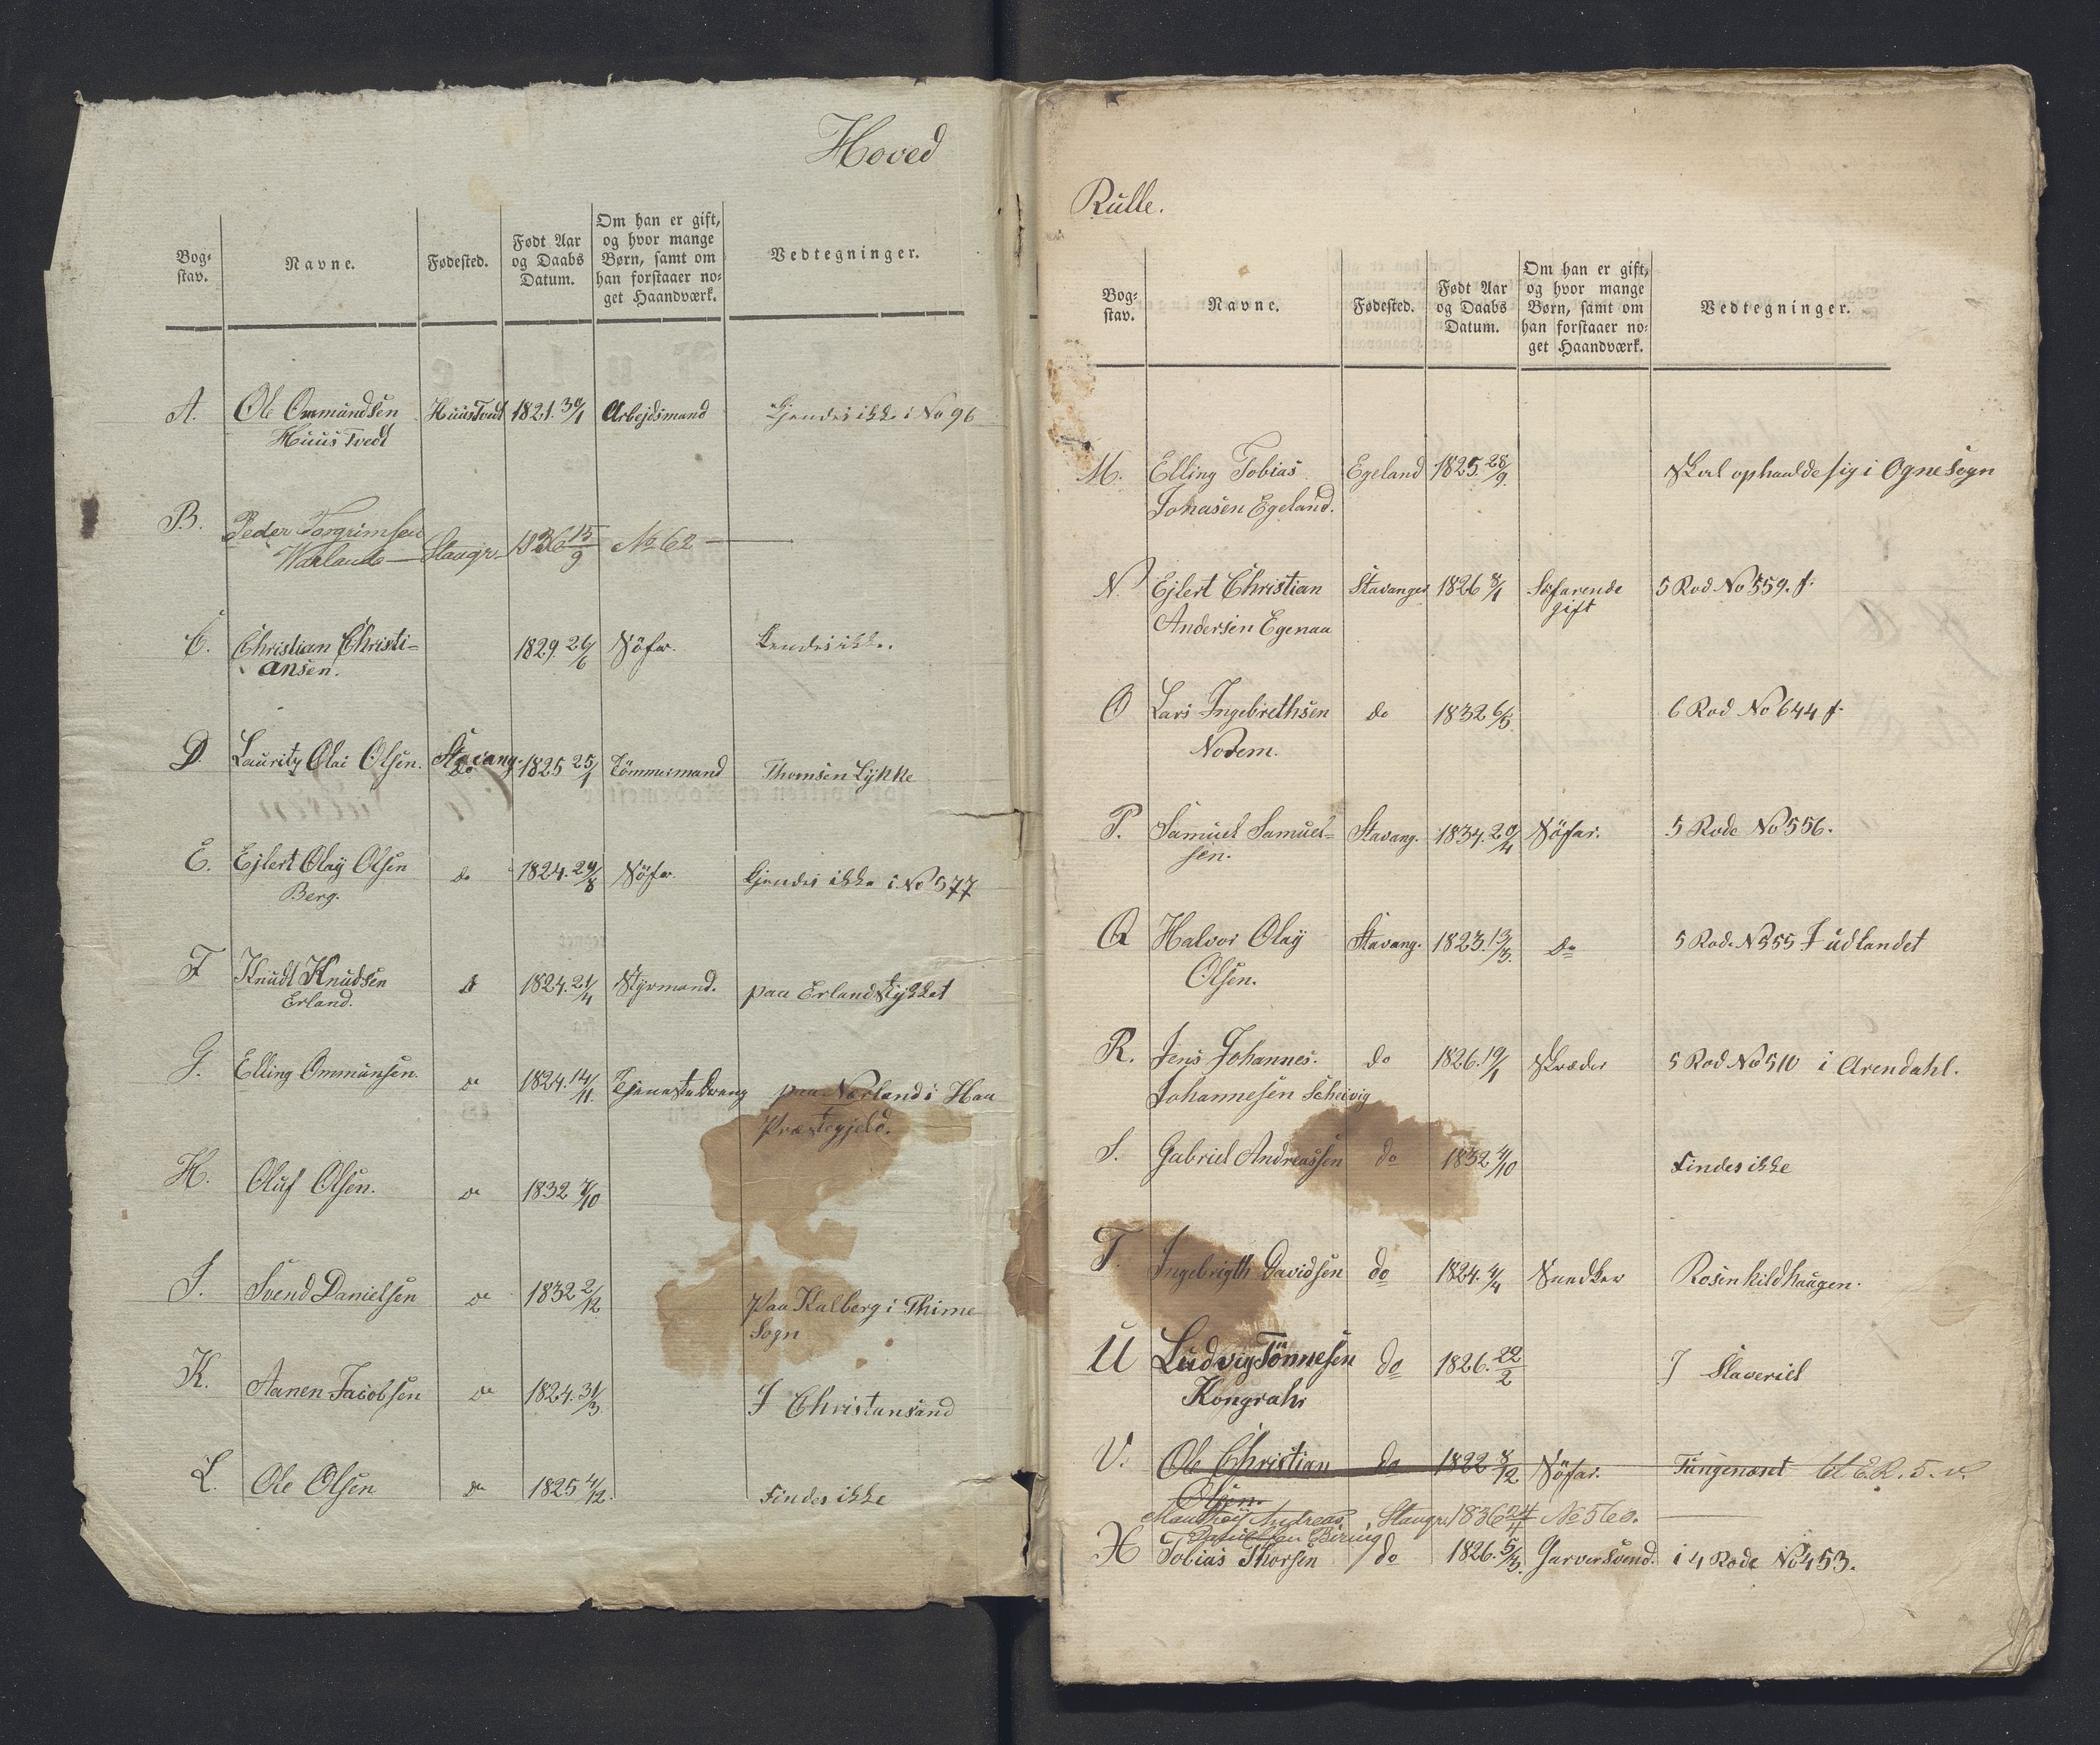 Hoved
Bog=
stav.
Navne.
Fødested.
Født Aar
og Daabs
Datum.
Om han er gift,
og hvor mange
Børn, samt om
han forstaaer no=
get Haandværk.
Vedtegninger.
A. Ole Ommundsen Huustvedt 1821. 30/1 Arbejdsmand Kjendes ikke i No 96
Huus Tvedt
B. Peder Torgrimsen
Warland Stavgr. 1836 15/9 No 62
C. Christian Christi= 1829. 26/6 Søfar. Kendes ikke.
ansen.
D Lauritz Olai Olsen. Stavang. 1825 25/1 Tömmermand Thomsen Lykke
E. Ejlert Olaÿ Olsen do 1824. 29/8 Søfar. Kjendes ikke i No 577
Berg.
F Knudt Knudsen do 1824. 21/4 Styrmand. paa Erland Stykket
Erland.
G. Elling Ommunsen. do 1824. 14/11. Tjenestedreng paa Nærland i Haa
Præstegjeld.
H. Oluf Olsen. do 1832 7/10
I. Svend Danielsen do 1832 2/12. Paa Kalberg i Thime
Sogn
K. Aanen Jacobsen do 1824. 31/3 I Christansand
L. Ole Olsen do 1825 4/12. Findes ikke
Rulle.
Bog=
stav.
Navne.
Fødested.
Født Aar
og Daabs
Datum.
Om han er gift,
og hvor mange
Børn, samt om
han forstaaer no=
get Haandværk.
Vedtegninger.
M. Elling Tobias Egeland 1825. 28/9. Skal ophaalde sig i Ogne Sogn
Johasen Egeland.
N. Ejlert Christian Stavanger 1826 8/1 Søfarende 5 Rod No 559. f.
gift
Andersen Egenaa
O Lars Ingebrethsen do 1832 6/5. 6 Rod No 644 f.
Nodem.
P. Samuel Samuel= Stavang. 1834. 20/4 Søfar. 5 Rode No 556.
sen.
Q Halvor Olaÿ Stavang. 1823. 13/3. do 5 Rod. No 555 I udlandet
Olsen.
R. Jens Johannes. do 1826. 19/1 Skræder 5 Rod No 510 i Arendahl.
Johannesen Scheivig
S. Gabriel Andreassen do 1832 4/10 Findes ikke
T. Ingebrigth Davidsen do 1824. 4/4 Snedker Rosenkildhaugen.
U Ludvig Tönnesen do 1826. 22/2 I Slaveriet
Kongrahs
V. Ole Christian do 1822 8/12 Søfar. Tungenæset til E.R. 5. v.
Olsen.
Andreas Stavgr. 1836 24/4 No 560.
Danielsen
H Tobias Thorsen do 1826. 5/3. Garversvend. i 4 Rode No 453.